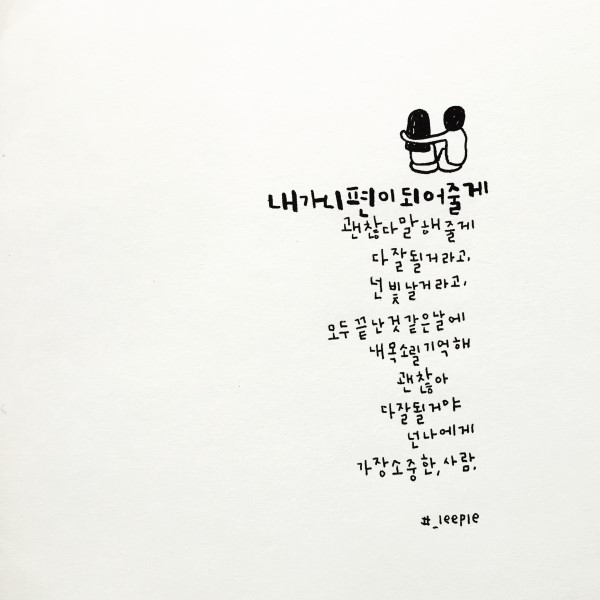 내가 니 편이 되어줄게
괜찮다 말해줄게
다 잘될 거라고,
넌 빛날 거라고,
모두 끝난 것 같은 날에
내 목소릴 기억해
괜찮아
다 잘될 거야
넌 나에게
가장 소중한, 사람.
#_leepie